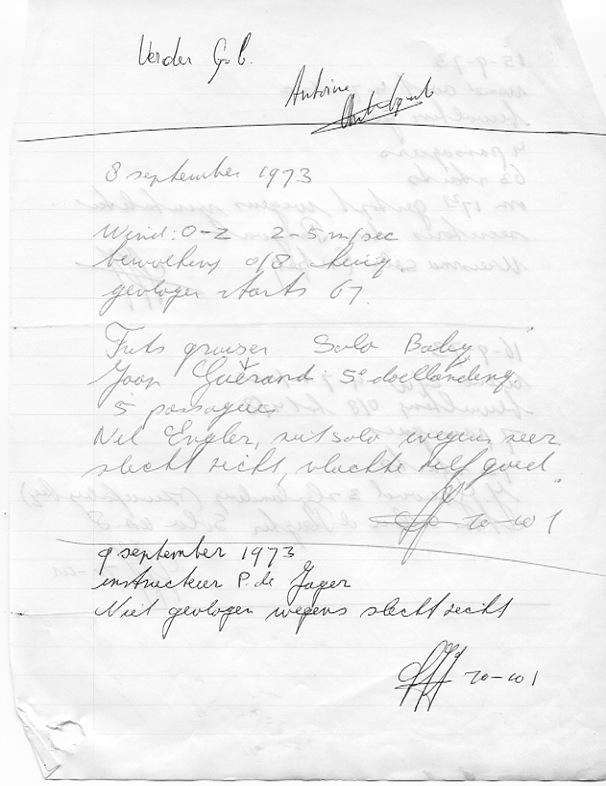 Verder G.b.
Antoine
8 september 1973
Wind: 0-2 2-5 m/sec
bewolking 0/8 heiig.
gevlogen starts 67.
Frits Solo Baby
Joop Guérand 5e doellanding
5 passagiers
Nel Engler, niet solo wegens zeer
slecht zicht, vluchte zelf goed
20-10 1
9 september 1973
instructeur P. de Jager
Niet gevlogen wegens slecht zicht
20-10 1